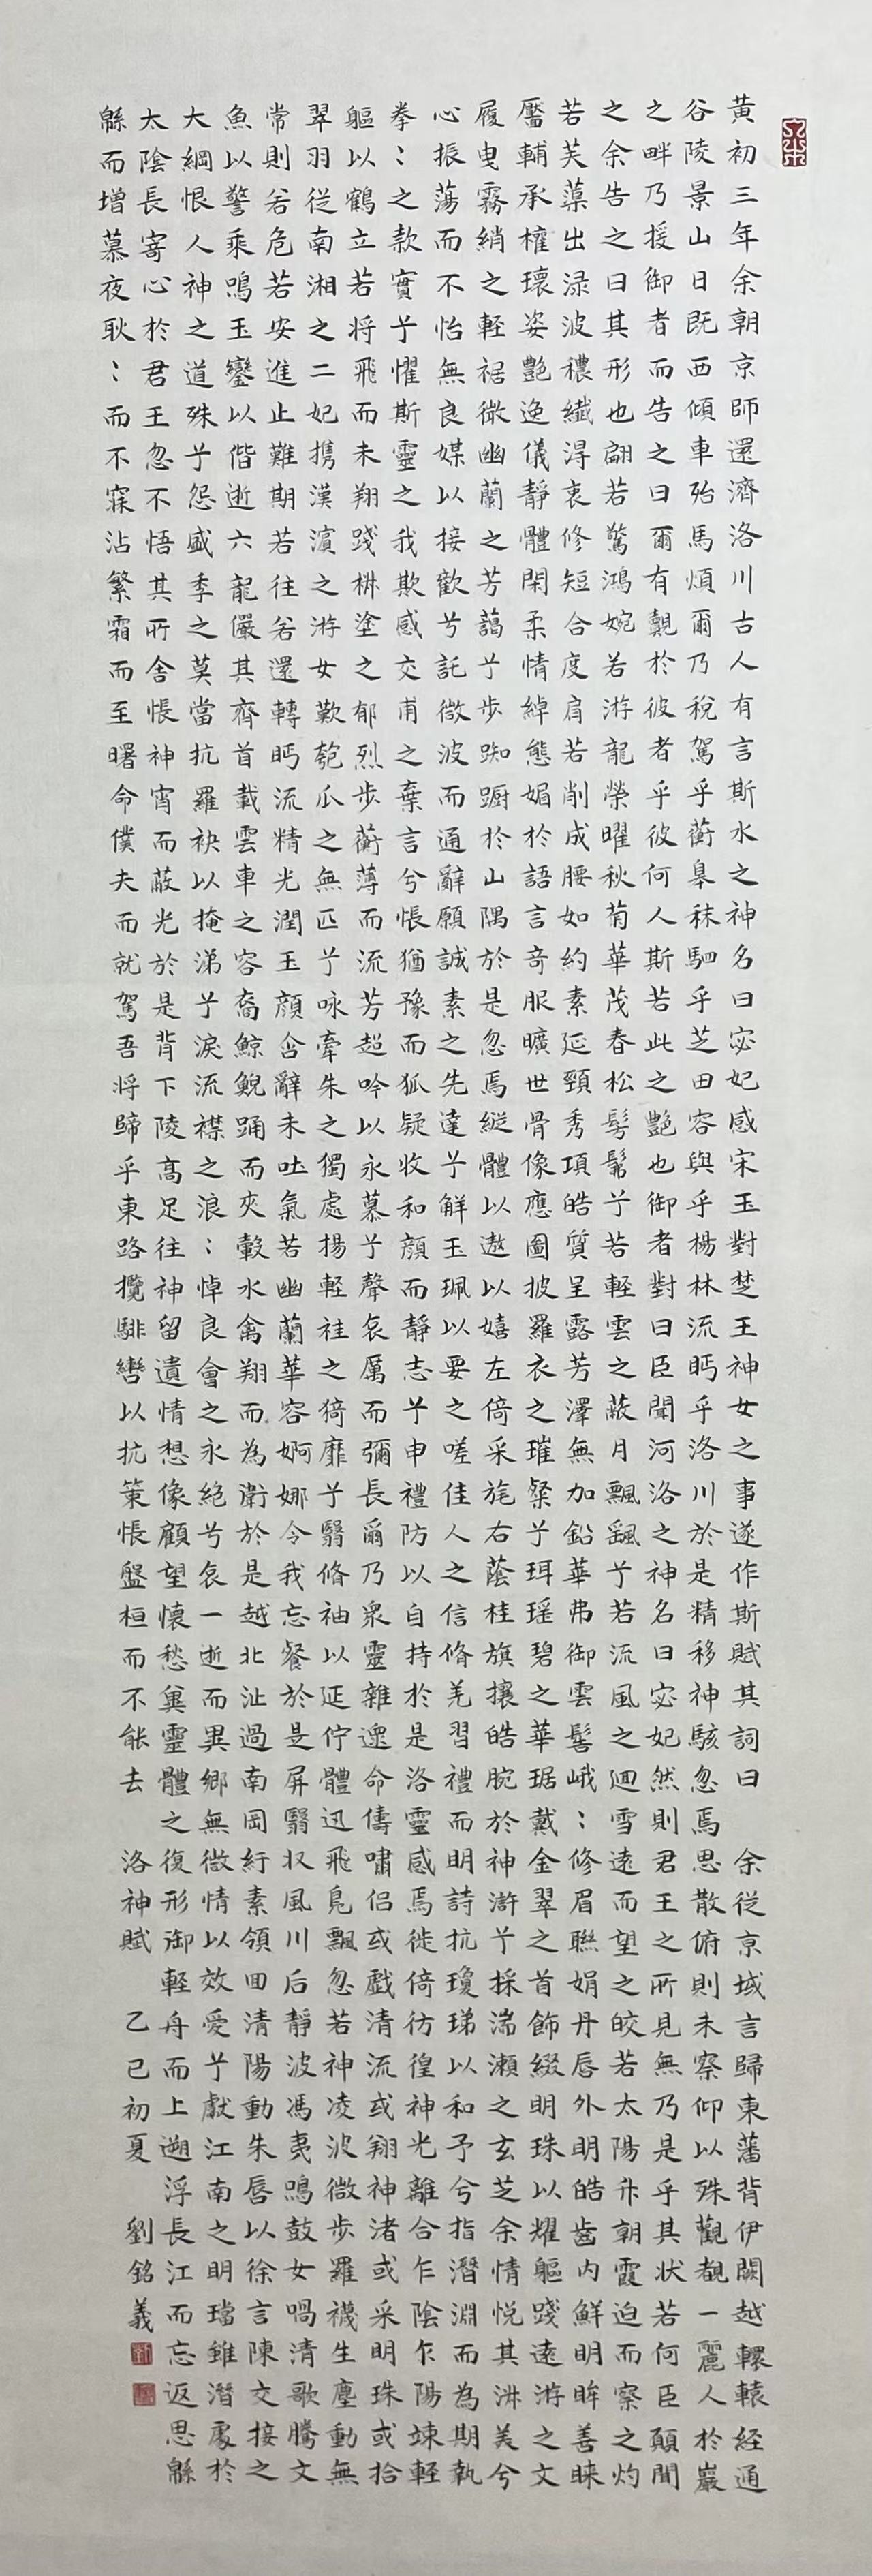 黄初三年余朝京師還濟洛川古人有言斯水之神名曰宓妃感宋玉對楚王神女之事遂作斯賦其詞曰 余從京域言歸東藩背伊闕越轘轅經通
谷陵景山日既西傾車殆馬煩爾乃稅駕乎蘅皋秣駟乎芝田容與乎楊林流眄乎洛川於是精移神駭忽焉思散俯則未察仰以殊觀覩一麗人於巖
之畔乃援御者而告之曰爾有覿於彼者乎彼何人斯若此之艷也御者對曰臣聞河洛之神名曰宓妃然則君王之所見無乃是乎其狀若何臣願聞
之余告之曰其形也翩若驚鴻婉若游龍榮曜秋菊華茂春松髣髴兮若輕雲之蔽月飄颻兮若流風之迴雪遠而望之皎若太陽升朝霞迫而察之灼
若芙蕖出渌波穠纖淂衷修短合度肩若削成腰如約素延頸秀項皓質呈露芳澤無加鉛華弗御雲髻峨〻修眉聯娟丹唇外朗皓齒內鮮明眸善睐
靨輔承權瓌姿艷逸儀靜體閑柔情綽態媚於語言奇服曠世骨像應圖披羅衣之璀粲兮珥瑤碧之華琚戴金翠之首飾綴明珠以耀軀踐遠游之文
履曳霧綃之輕裾微幽蘭之芳藹兮步踟躕於山隅於是忽焉縱體以遨以嬉左倚采旄右蔭桂旗攘皓腕於神滸兮採湍瀨之玄芝余情悅其淑美兮
心振蕩而不怡無良媒以接歡兮託微波而通辭願誠素之先達兮解玉珮以要之嗟佳人之信脩羌習禮而明詩抗瓊珶以和予兮指潛淵而為期執
拳〻之款實兮懼斯靈之我欺感交甫之棄言兮悵猶豫而狐疑收和顏而靜志兮申禮防以自持於是洛靈感焉徙倚彷徨神光離合乍陰乍陽竦輕
軀以鶴立若將飛而未翔踐椒塗之郁烈步蘅薄而流芳超吟以永慕兮聲哀厲而彌長爾乃眾靈雜遝命儔嘯侶或戲清流或翔神渚或采明珠或拾
翠羽從南湘之二妃攜漢濱之游女歎匏瓜之無匹兮咏牽朱之獨處揚輕袿之猗靡兮翳脩袖以延佇體迅飛鳧飄忽若神凌波微步羅襪生塵動無
常則若危若安進止難期若往若還轉眄流精光潤玉顏含辭未吐氣若幽蘭華容婀娜令我忘餐於是屏翳收風川后靜波馮夷鳴鼓女媧清歌騰文
魚以警乘鳴玉鸞以偕逝六龍儼其齊首載雲車之容裔鯨鯢踊而夾轂水禽翔而為衛於是越北沚過南岡紆素領回清陽動朱唇以徐言陳交接之
大綱恨人神之道殊兮怨盛季之莫當抗羅袂以掩涕兮淚流襟之浪〻悼良會之永絕兮哀一逝而異鄉無微情以效愛兮獻江南之明璫雖潛處於
太陰長寄心於君王忽不悟其所舍悵神宵而蔽光於是背下陵高足往神留遺情想像顧望懷愁冀靈體之復形御輕舟而上遡浮長江而忘返思緜
緜而增慕夜耿〻而不寐沾繁霜而至曙命僕夫而就駕吾將歸乎東路攬騑轡以抗策悵盤桓而不能去 洛神賦 乙巳初夏 劉銘義